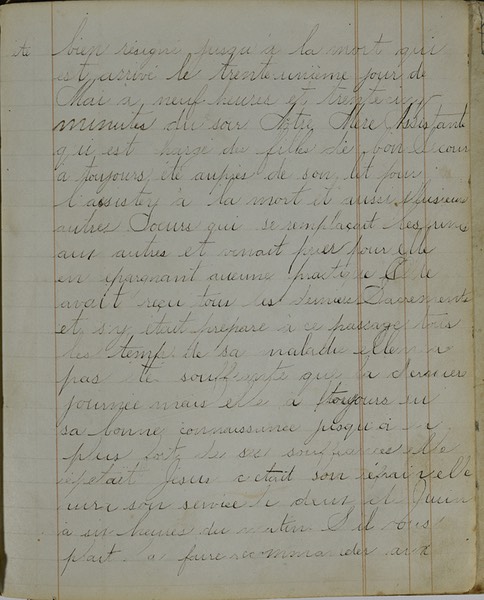 été bien résigné jusqu'à la mort qui
est arrivé le trente unième jour de
Mai a neuf heures et trente
minutes du soir Notre Mère Assistante
qui est chargé du filles de bon Secour
a toujours été aupres de son lit pour
l'assister à la mort et aussi plusieur
autres Soeurs qui se remplaçait les uns
aux autres et venait prier pour elle
en epargnant aucune pratique Elle
avait reçu tous les Sacrements
et s'y était préparé à ce passage tous
les temp de sa maladie elle
pas été souffrante que la dernier
journée mais elle a toujours eu
sa bonne connaissance jusqu'a
plus fort de ses souffrances elle
repetait Jesus c'était son
aura son service
a six heures du matin S'il vous
plait la faire recommander aux